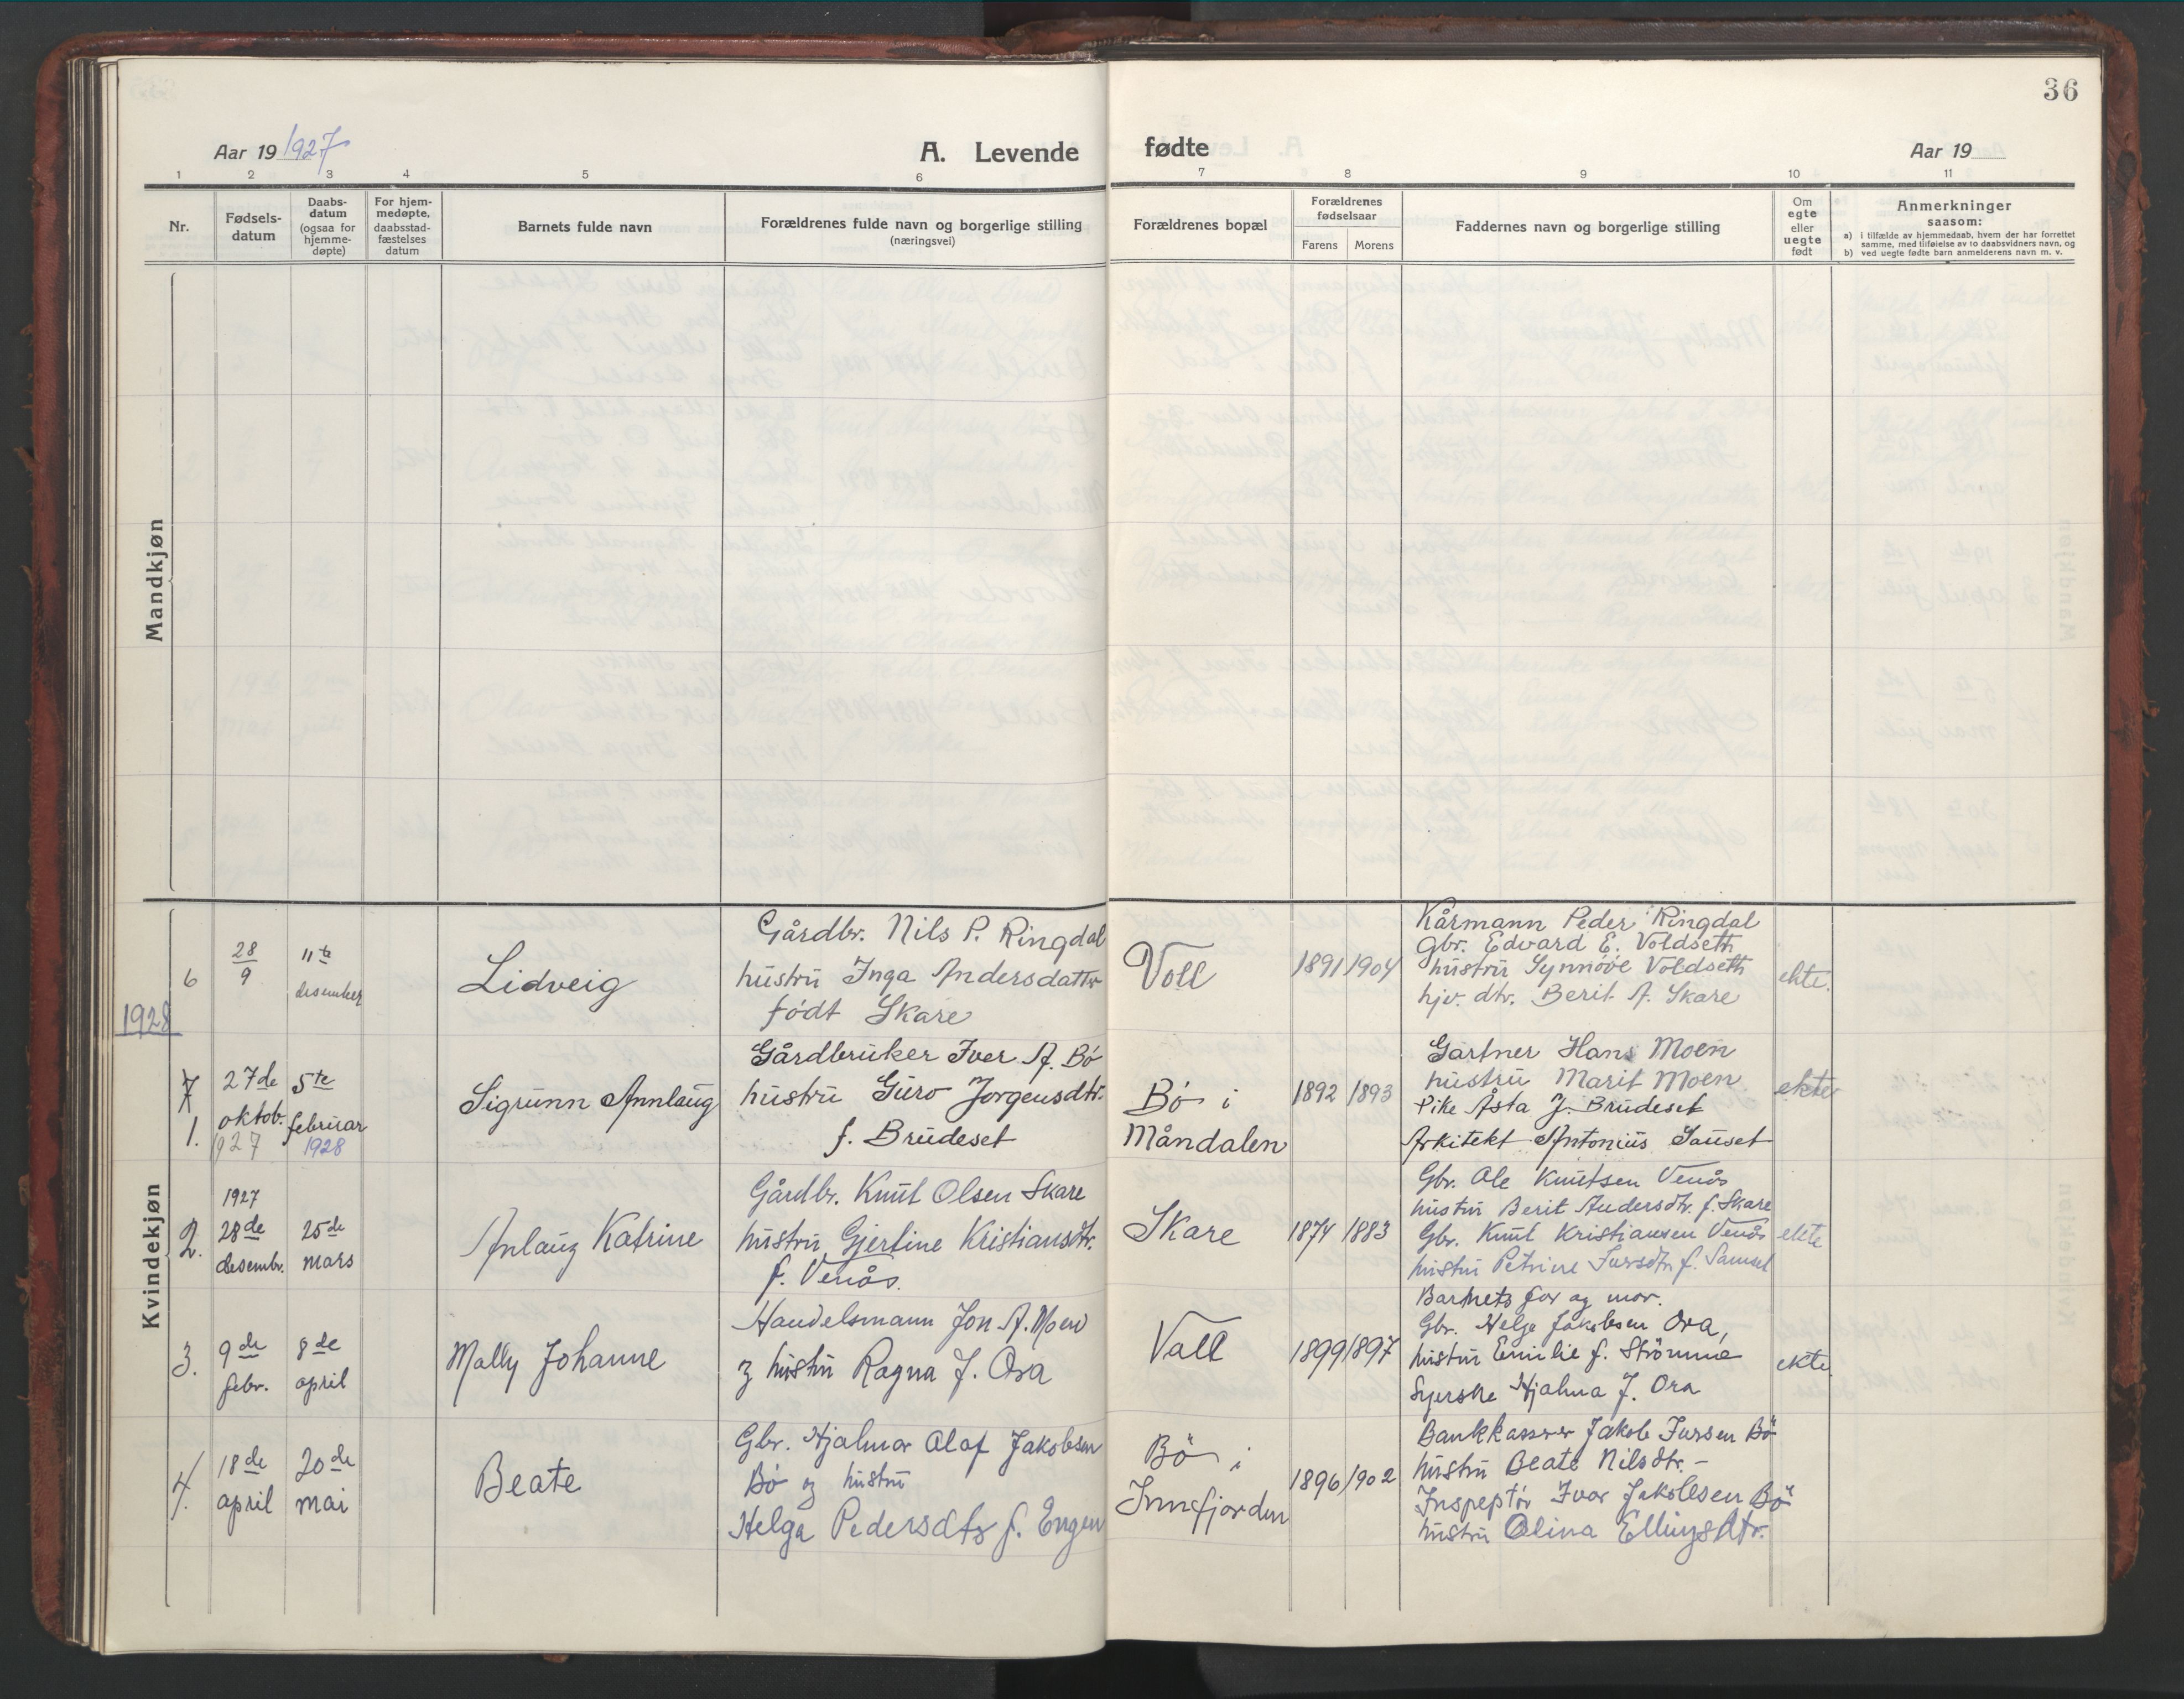 36
Aar 19 1927
A. Levende fødte
Aar 19
1 2 3 4 5 6 7 8 9 10 11
Nr.
Fødsels-
datum
Daabs-
datum
(ogsaa for
hjemme-
døpte)
For hjem-
medøpte,
daabsstad-
fæstelses
datum
Barnets fulde navn
Forældrenes fulde navn og borgerlige stilling
(næringsvei)
Forældrenes bopæl
Forældrenes
fødselsaar
Farens Morens
Faddernes navn og borgerlige stilling
Om
egte
eller
uegte
født
Anmerkninger
saasom:
a) i tilfælde av hjemmedaab, hvem der har forrettet
samme, med tilføielse av to daabsvidners navn, og
b) ved uegte fødte barn anmelderens navn m. v.
Mandkjøn
Kvindekjøn
6
28
9
11te
desember
Lidveig
Gårdbr. Nils P. Ringdal
hustru Inga Andersdatter
født Skare
Voll
1891 1904
Kårmann Peder Ringdal
Gbr. Edvard E. Voldseth
hustru Synnöve Voldseth
hjv. dtr. Berit A. Skare
ekte.
1928
7
1.
27de
oktob.
1927
5te
februar
1928
Sigrunn Annlaug
Gårdbruker Iver A. Bö
hustru Guro Jorgensdtr.
f. Brudeset
Bö i
Måndalen
1892 1893
Gartner Hans Moen
hustru Marit Moen
Pike Åsta J. Brudeset
Arkitekt Antonius Sauset
ekte
2.
1927
28de
desembr.
25de
mars
Anlaug Katrine
Gårdbr. Knut Olsen Skare
hustru Gjertine Kristiansdtr.
f. Venås.
Skare
1874 1883
Gbr. Ole Knutsen Venås
hustru Berit Andersdtr. f. Skare
Gbr. Knut Kristiansen Venås
hustru Petrine Iversdtr f.
Barnets far og mor.
ekte
3.
9de
febr.
8de
april
Mally Johanne
Handelsmann Jon A. Moen
og hustru Ragna J. Ora
Vall
1899 1897
Gbr. Helge Jakobsen Ora,
hustru Emilie f. Strömme
Syerske Hjalma J. Ora
ekte.
4.
18de
april
20de
mai
Beate
Gbr. Hjalmar Olaf Jakobsen
Bö og hustru
Helga Pedersdtr f. Engen
Bö i
Innfjorden
1896 1902
Bankkasserer Jakob Iversen Bö
hustru Beate Nilsdtr. -
Inspeptör Ivar Jakobsen Bö
hustru Olina Ellingsdtr.